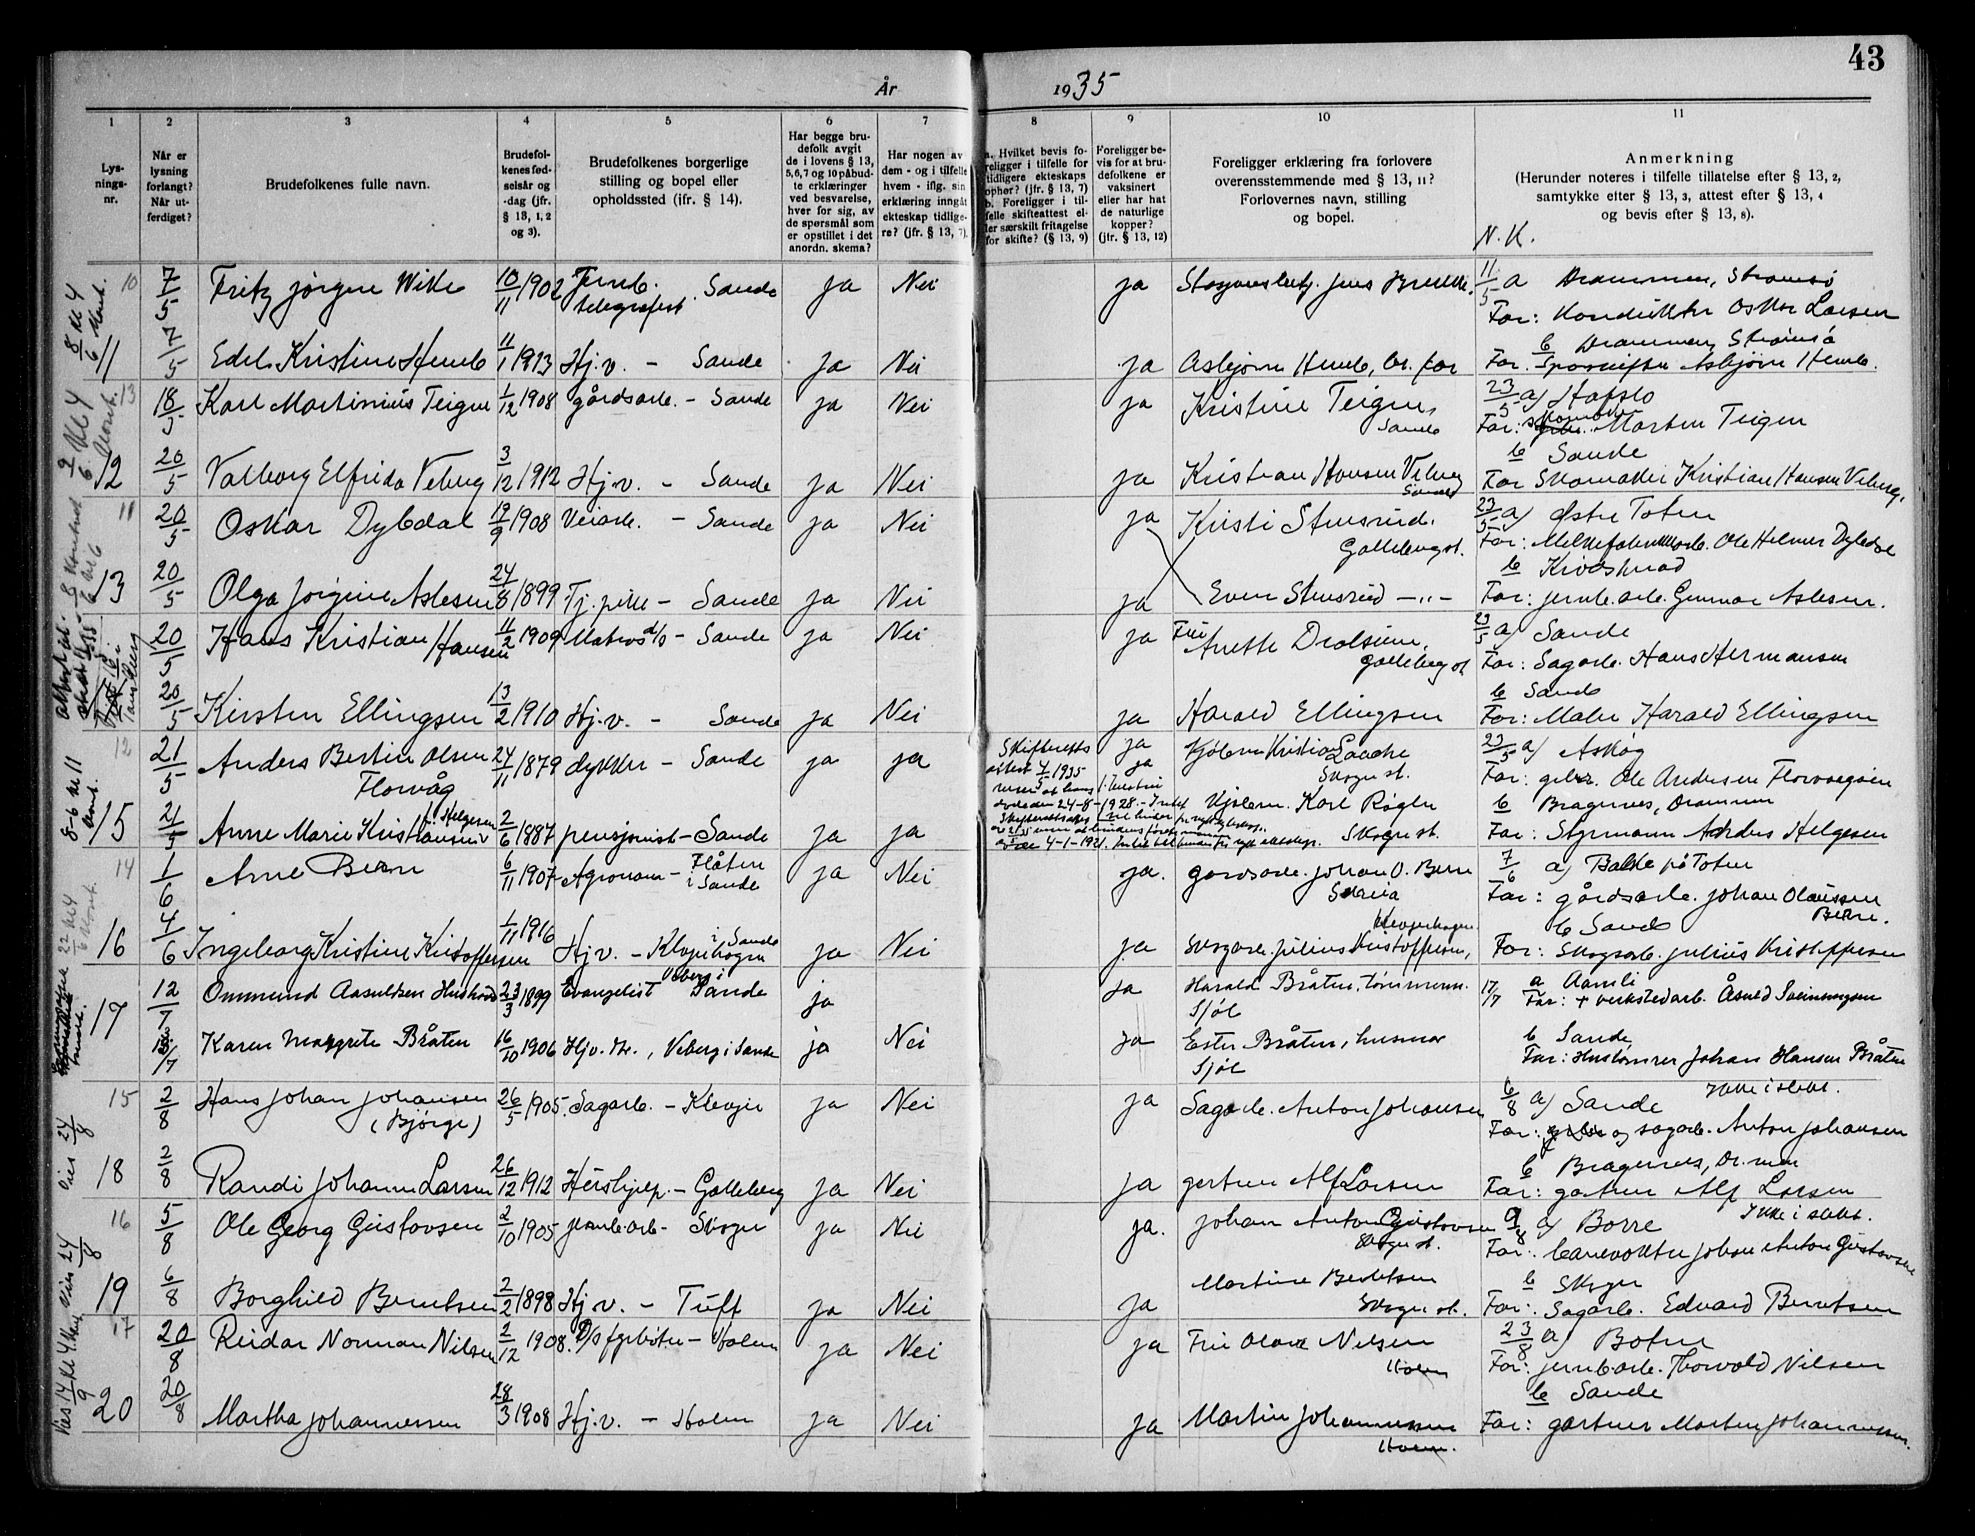 43
År 1935
1
2
3
4
5
6
7
8
9
10
11
Lys-
nings-
nr.
Når er
lysning
forlangt?
Når ut-
ferdiget?
Brudefolkenes fulle navn.
Brudefol-
kenes fød-
selsår og
-dag (jfr.
§ 13, 1, 2
og 3).
Brudefolkenes borgerlige
stilling og bopel eller
opholdssted (jfr. § 14).
Har begge bru-
defolk avgit
de i lovens § 13,
5,6,7 og 10 påbud-
te erklæringer
ved besvarelse,
hver for sig, av
de spørsmål som
er opstillet i det
anordn. skema?
Har nogen av
dem - og i tilfelle
hvem - iflg. sin
erklæring inngåt
ekteskap tidlige-
re? (jfr. § 13, 7).
a. Hvilket bevis fo-
religger i tilfelle for
tidligere ekteskaps
ophør? (jfr. § 13, 7)
b. Foreligger i til-
felle skifteattest el-
ler særskilt fritagelse
for skifte? (§ 13, 9)
Foreligger be-
vis for at bru-
defolkene er
vaksinert
eller har hat
de naturlige
kopper?
(jfr. § 13, 12)
Foreligger erklæring fra forlovere
overensstemmende med § 13, 11?
Forlovernes navn, stilling
og bopel.
Anmerkning
(Herunder noteres i tilfelle tillatelse efter § 13, 2,
samtykke etter § 13, 3, attest efter § 13, 4
og bevis efter § 13, 8).
N. K.
10 7/5 Fritz Jørgen Wike 10/11 1902 Jernb. telegrafist. Sande ja Nei ja 11/5 a Drammen, Strømsø
For: Konduktør Oskar Larsen
11 7/5 Edel Kristine Hemb 11/1 1913 Hj.v. - Sande ja Nei ja Asbjørn Hemb, br. far b Drammen, Strømsø
Far. Asbjørn Hemb.
13 18/5 Karl Martinius Teigen 1/12 1908 gårdsarb. - Sande ja Nei ja Kristine Teigen, Sande 23/5 a) Hafslo
Far: Morten Teigen
12 20/5 Valborg Elfrida Veberg 3/12 1912 Hj.v. - Sande ja Nei ja Kristian Hansen Veberg Sande b Sande
Far Skomaker Kristian Hansen Veberg.
11 20/5 Oskar Dybdal 19/9 1908 Veiarb. - Sande ja Nei ja Kristi Stensrud, Galleberg st. 23/5 a) Østre Toten
Far: Ole Helmer Dybdal
13 20/5 Olga Jørgine Aslesen 24/8 1899 Tj. pike - Sande ja Nei ja Even Stensrud -"- b
For: jernb. arb. Gunnar Aslesen.
20/5 Hans Kristian Hansen 11/2 1909 Matros d/s - Sande ja Nei ja Anette Dralsum, Galleberg st 23/5 a) Sande
Far: Sagarb. Hans Hermansen
20/5 Kirsten Ellingsen 13/2 1910 Hj.v. - Sande ja Nei ja Harald Ellingsen b Sande
For: Maler Harald Ellingsen
12 21/5 Anders Bertin Olsen Florvåg 24/11 1879 dykker - Sande ja ja Skifteretts attest 4/5 1935 ja ja Skoger st. 23/5 a) Askøy
Far: gbr. Ole Andersen Florvaagøien
15 21/5 Anne Marie Kristiansen f. Helgesen 2/6 1887 pensjonist - Sande ja ja Karl Røgle Skoger st. b Bragernes, Drammen
Far: Styrmann Anders Helgesen
14 1/6 Arne Bern 6/11 1907 Agronom - Flåten i Sande ja Nei ja. gardsarb. Johan O. Bern Skreia 7/6 a) Balke på Toten
Far: gårdsarb. Johan Olaussen Bern.
16 4/6 Ingeborg Kristine Kristoffersen 1/11 1916 Hj.v. - Klevjerhagen i Sande ja Nei ja Skogarb. Julius Kristoffersen, Klevjerhagen b Sande
For: Skogsarb. Julius Kristoffersen
17 12/7 Ommund Aasultsen 23/3 1899 Evangelist Veberg i Sande ja ja Harald Bråten, tømmerm. Sjøl 17/7 a Aamli
Far: + verkstedarb.
13/7 Karen Margrete Bråten 16/10 1906 Hj.v. , Veberg i Sande ja Nei ja Ester Bråten, husmor Sjøl b Sande
Far: Hustømrer Johan Hansen Bråten
Ikke i slekt.
15 2/8 Hans Johan Johansen (Bjørge) 26/5 1905. Sagarb. - Klevjer ja Nei ja Sagarb. Anton Johansen 6/8 a) Sande
Far: og sagarb. Anton Johansen
18 2/8 Randi Johanne Larsen 26/12 1912 Hushjelp. - Galleberg ja Nei ja gartner Alf Larsen b Bragernes, Dr.men
Far: gartner Alf Larsen
Ikke i slekt.
16 5/8 Ole Georg Gustavsen 2/10 1905 jernb.arb - Skoger ja Nei ja. Johan Anton Gustavsen Skoger st. 9/8 a) Borre
Far: banevokter Johan Anton Gustavsen
19 6/8 Borghild Berntsen 2/2 1898 Hj.v. - Tuft ja Nei ja Martine Berntsen Skoger st. b Skoger
For: Sagarb. Edvard Berntsen
17 20/8 Reidar Norman Nilsen 2/12 1908. D/s fyrbøter - Holm ja Nei ja Nilsen Holm 23/8 a) Botne
Far: jernb.arb. Thorvald Nilsen
20 20/8 Martha Johannessen 28/3 1908 Hj.v. - Holm ja Nei ja Martin Johannessen Holm. b Sande
Far: gartner Morten Johannessen.